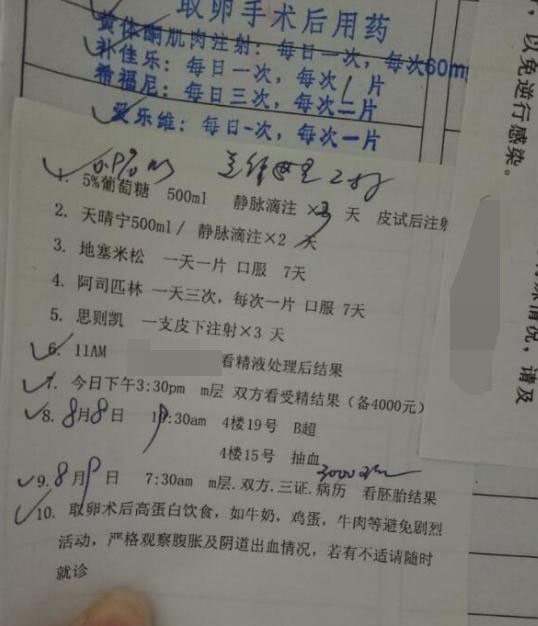 取卵手术后用药
黄体酮肌肉注射：每日一次，每次60mg
补佳乐：每日一次，每次1片
希福尼：每日三次，每次二片
爱乐维：每日一次，每次一片
，以免逆行感染。
情况，请及
0.9% NS
1. 5%葡萄糖 500ml 静脉滴注 ×3 天 皮试后注射
2. 天晴宁500ml / 静脉滴注×2 天
3. 地塞米松 一天一片 口服 7天
4. 阿司匹林 一天三次，每次一片 口服 7天
5. 思则凯 一支皮下注射×3 天
6. 11AM 看精液处理后结果
7. 今日下午3:30pm m层 双方看受精结果（备4000元）
8. 8月8日 :30am 4楼19号 B超
4楼15号 抽血
3000
9. 8月9日 7:30am m层.双方.三证.病历 看胚胎结果
10. 取卵术后高蛋白饮食，如牛奶，鸡蛋，牛肉等避免剧烈
活动，严格观察腹胀及阴道出血情况，若有不适请随时
就诊